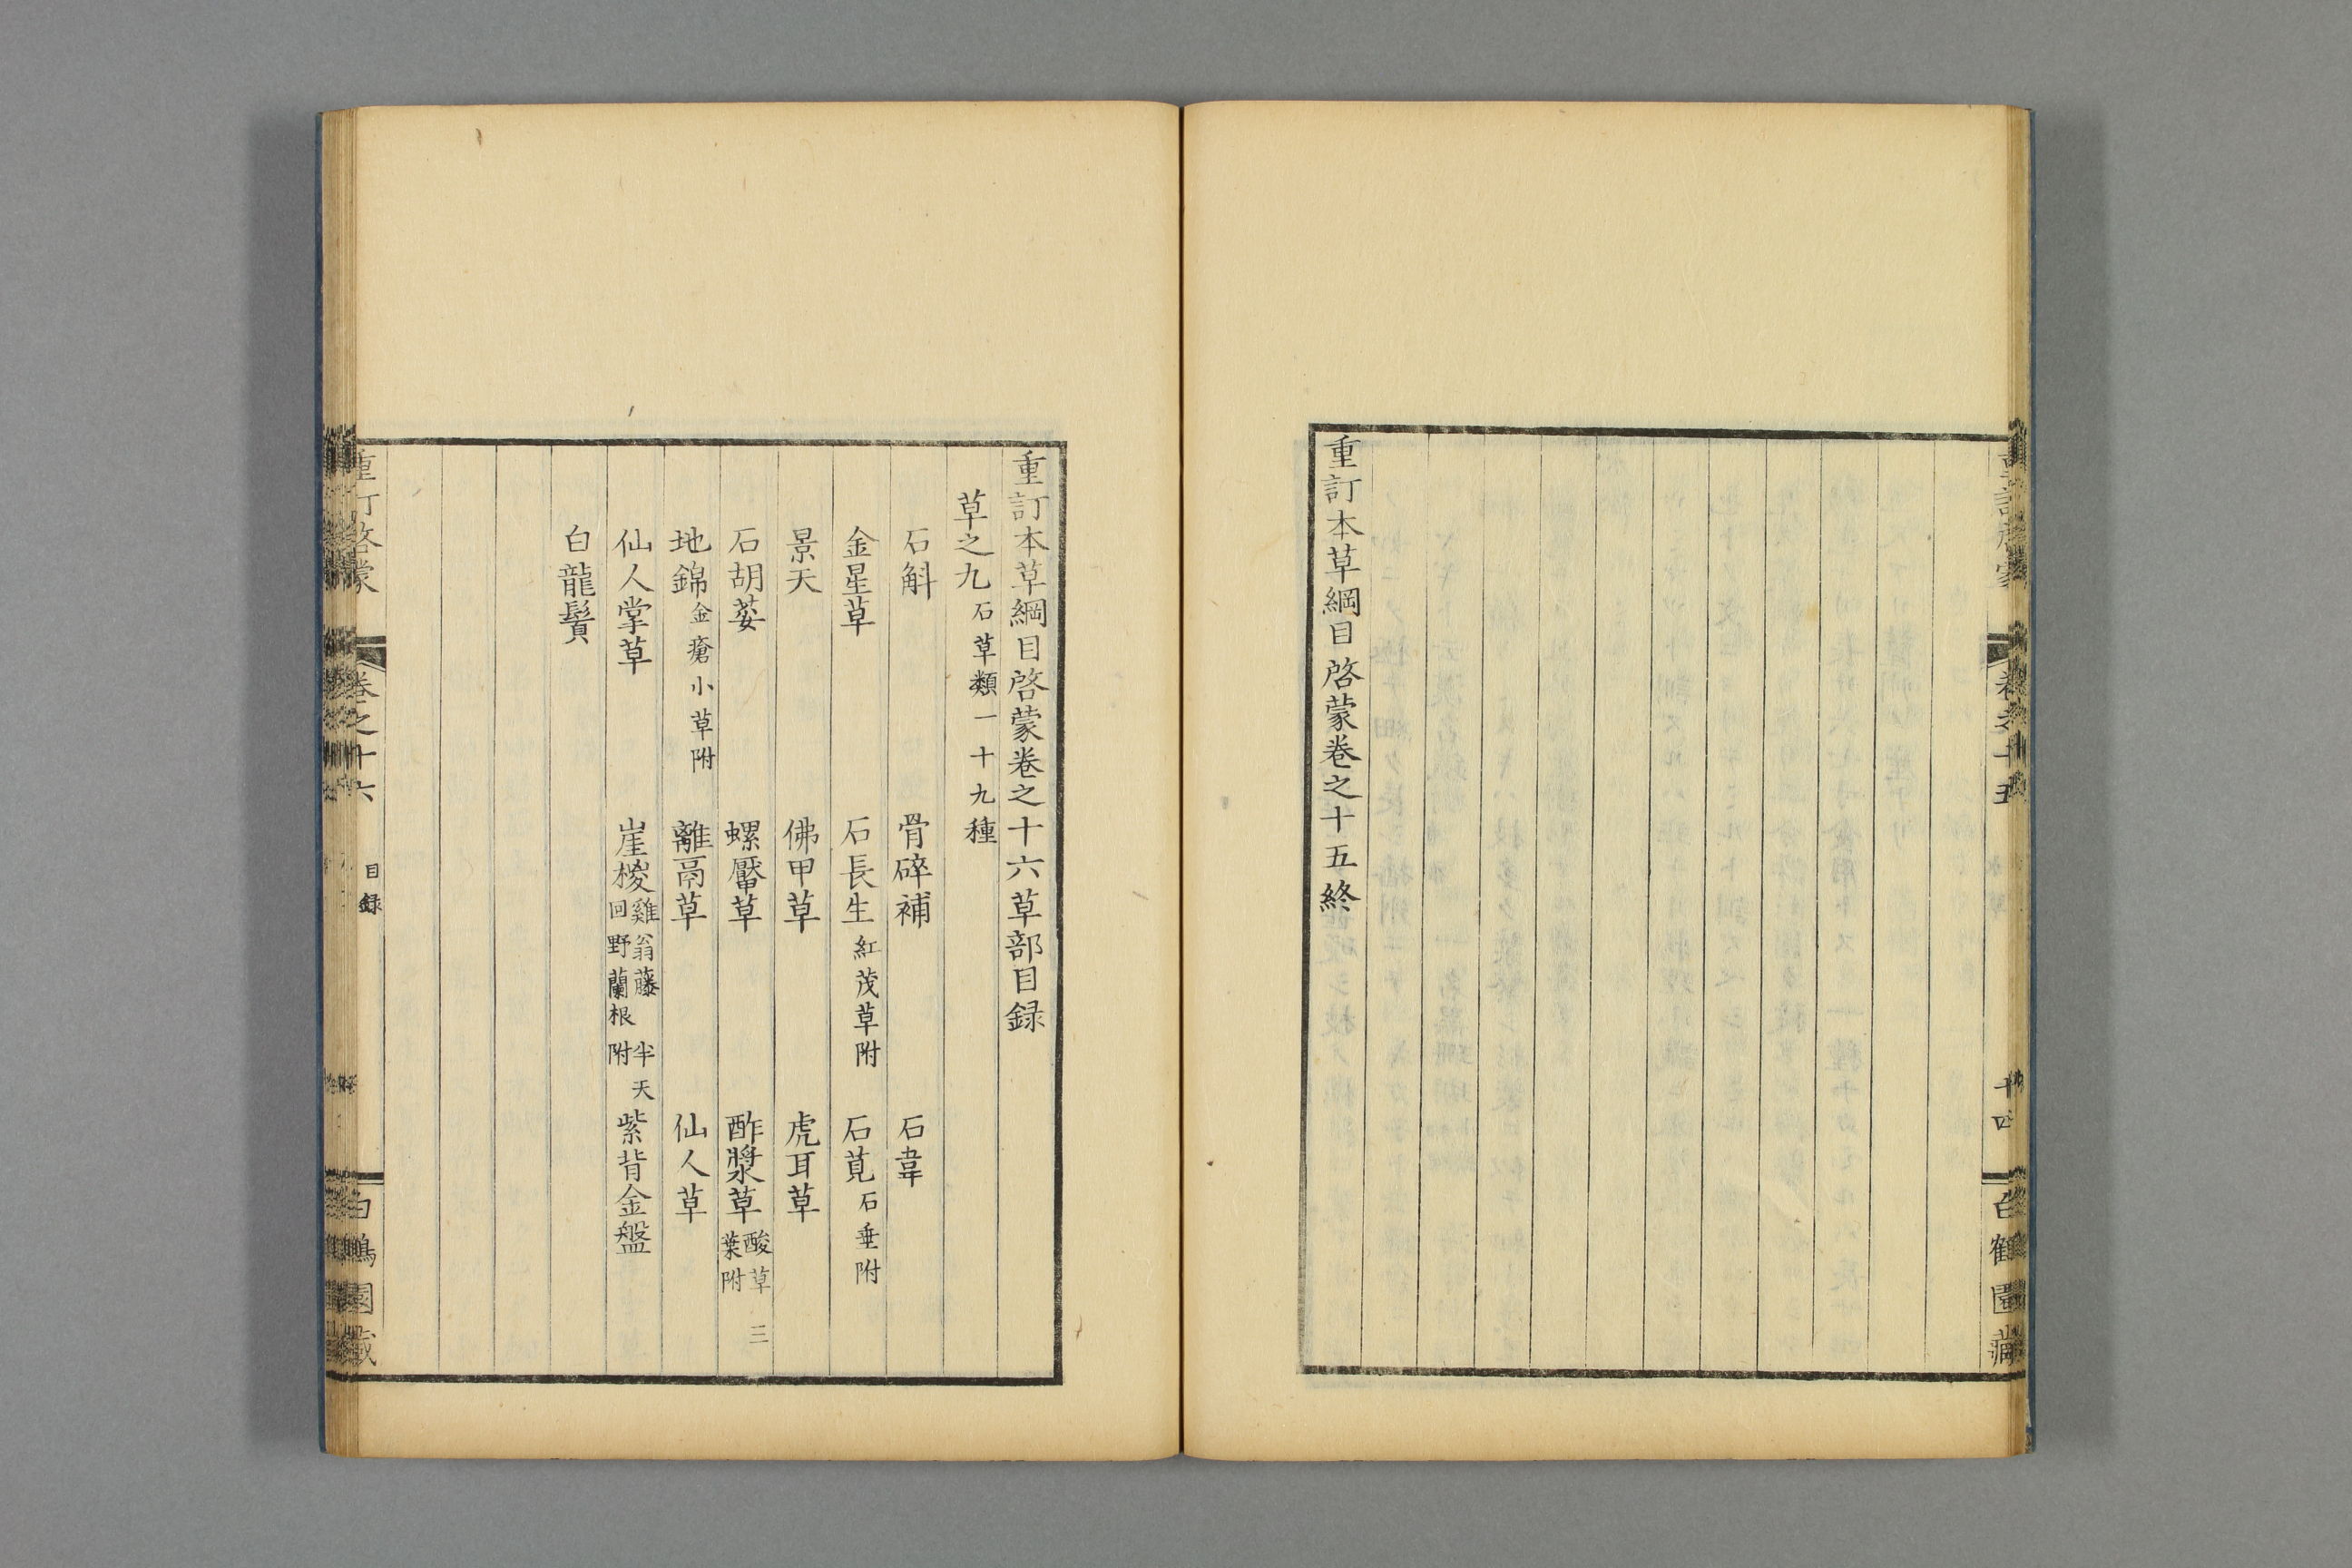 重訂本草綱目啓蒙卷之十五終
重訂本草綱目啓蒙卷之十六草部目録
草之九 石草類一十九種
石斛 骨碎補 石韋
金星草 石長生 紅茂草附 石莧 石垂附
景天 佛甲草 虎耳草
石胡荽 螺靨草 酢漿草 酸草 三葉附
地錦 金瘡小草附 離鬲草 仙人草
仙人掌草 崖椶 雞翁藤 半天回 野蘭根 附 紫背金盤
白龍鬚
重訂啓蒙 卷之十六 目録